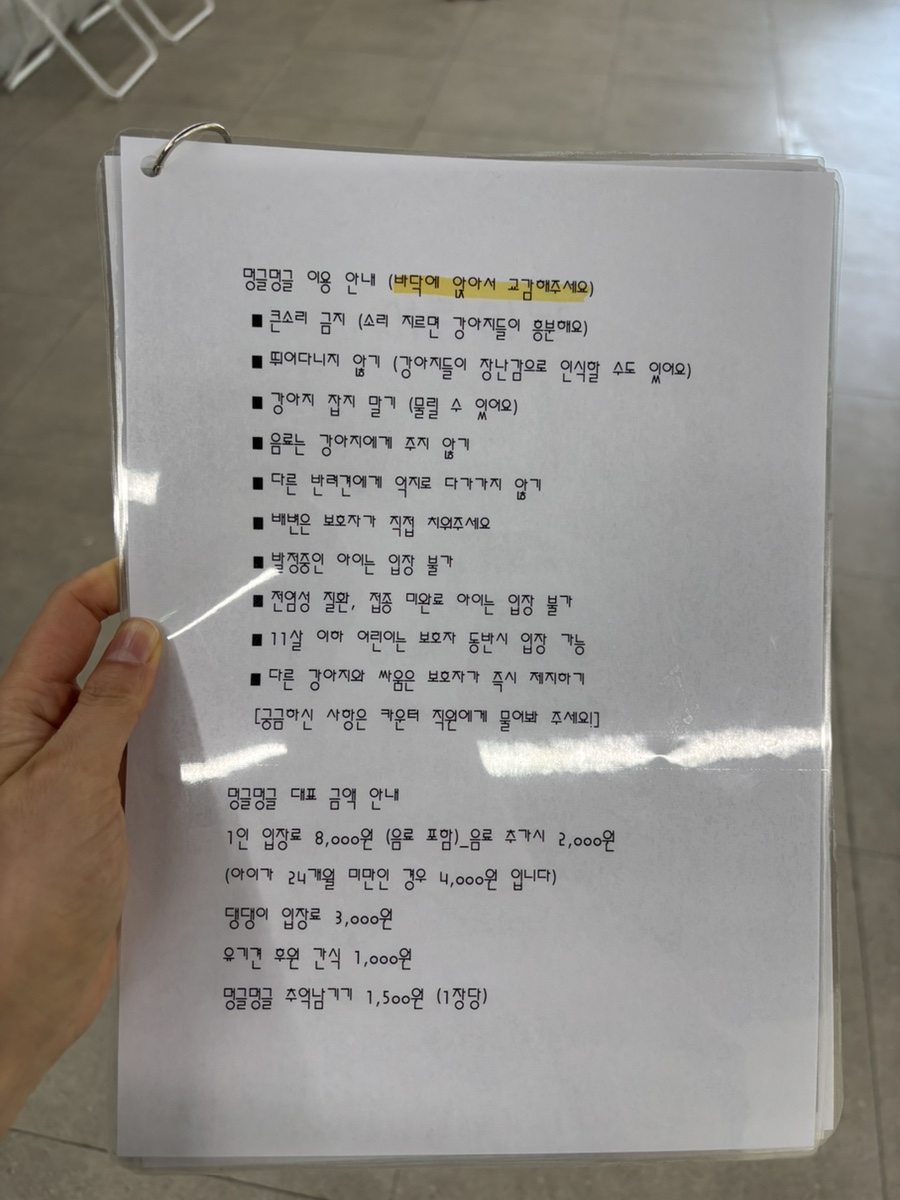 멍글멍글 이용 안내 (바닥에 앉아서 교감해주세요)
■ 큰소리 금지 (소리 지르면 강아지들이 흥분해요)
■ 뛰어다니지 않기 (강아지들이 장난감으로 인식할 수도 있어요)
■ 강아지 잡지 말기 (물릴 수 있어요)
■ 음료는 강아지에게 주지 않기
■ 다른 반려견에게 억지로 다가가지 않기
■ 배변은 보호자가 직접 치워주세요
■ 발정중인 아이는 입장 불가
■ 전염성 질환, 접종 미완료 아이는 입장 불가
■ 11살 이하 어린이는 보호자 동반시 입장 가능
■ 다른 강아지와 싸움은 보호자가 즉시 제지하기
[궁금하신 사항은 카운터 직원에게 물어봐 주세요!]
멍글멍글 대표 금액 안내
1인 입장료 8,000원 (음료 포함)_음료 추가시 2,000원
(아이가 24개월 미만인 경우 4,000원 입니다)
댕댕이 입장료 3,000원
유기견 후원 간식 1,000원
멍글멍글 추억남기기 1,500원 (1장당)